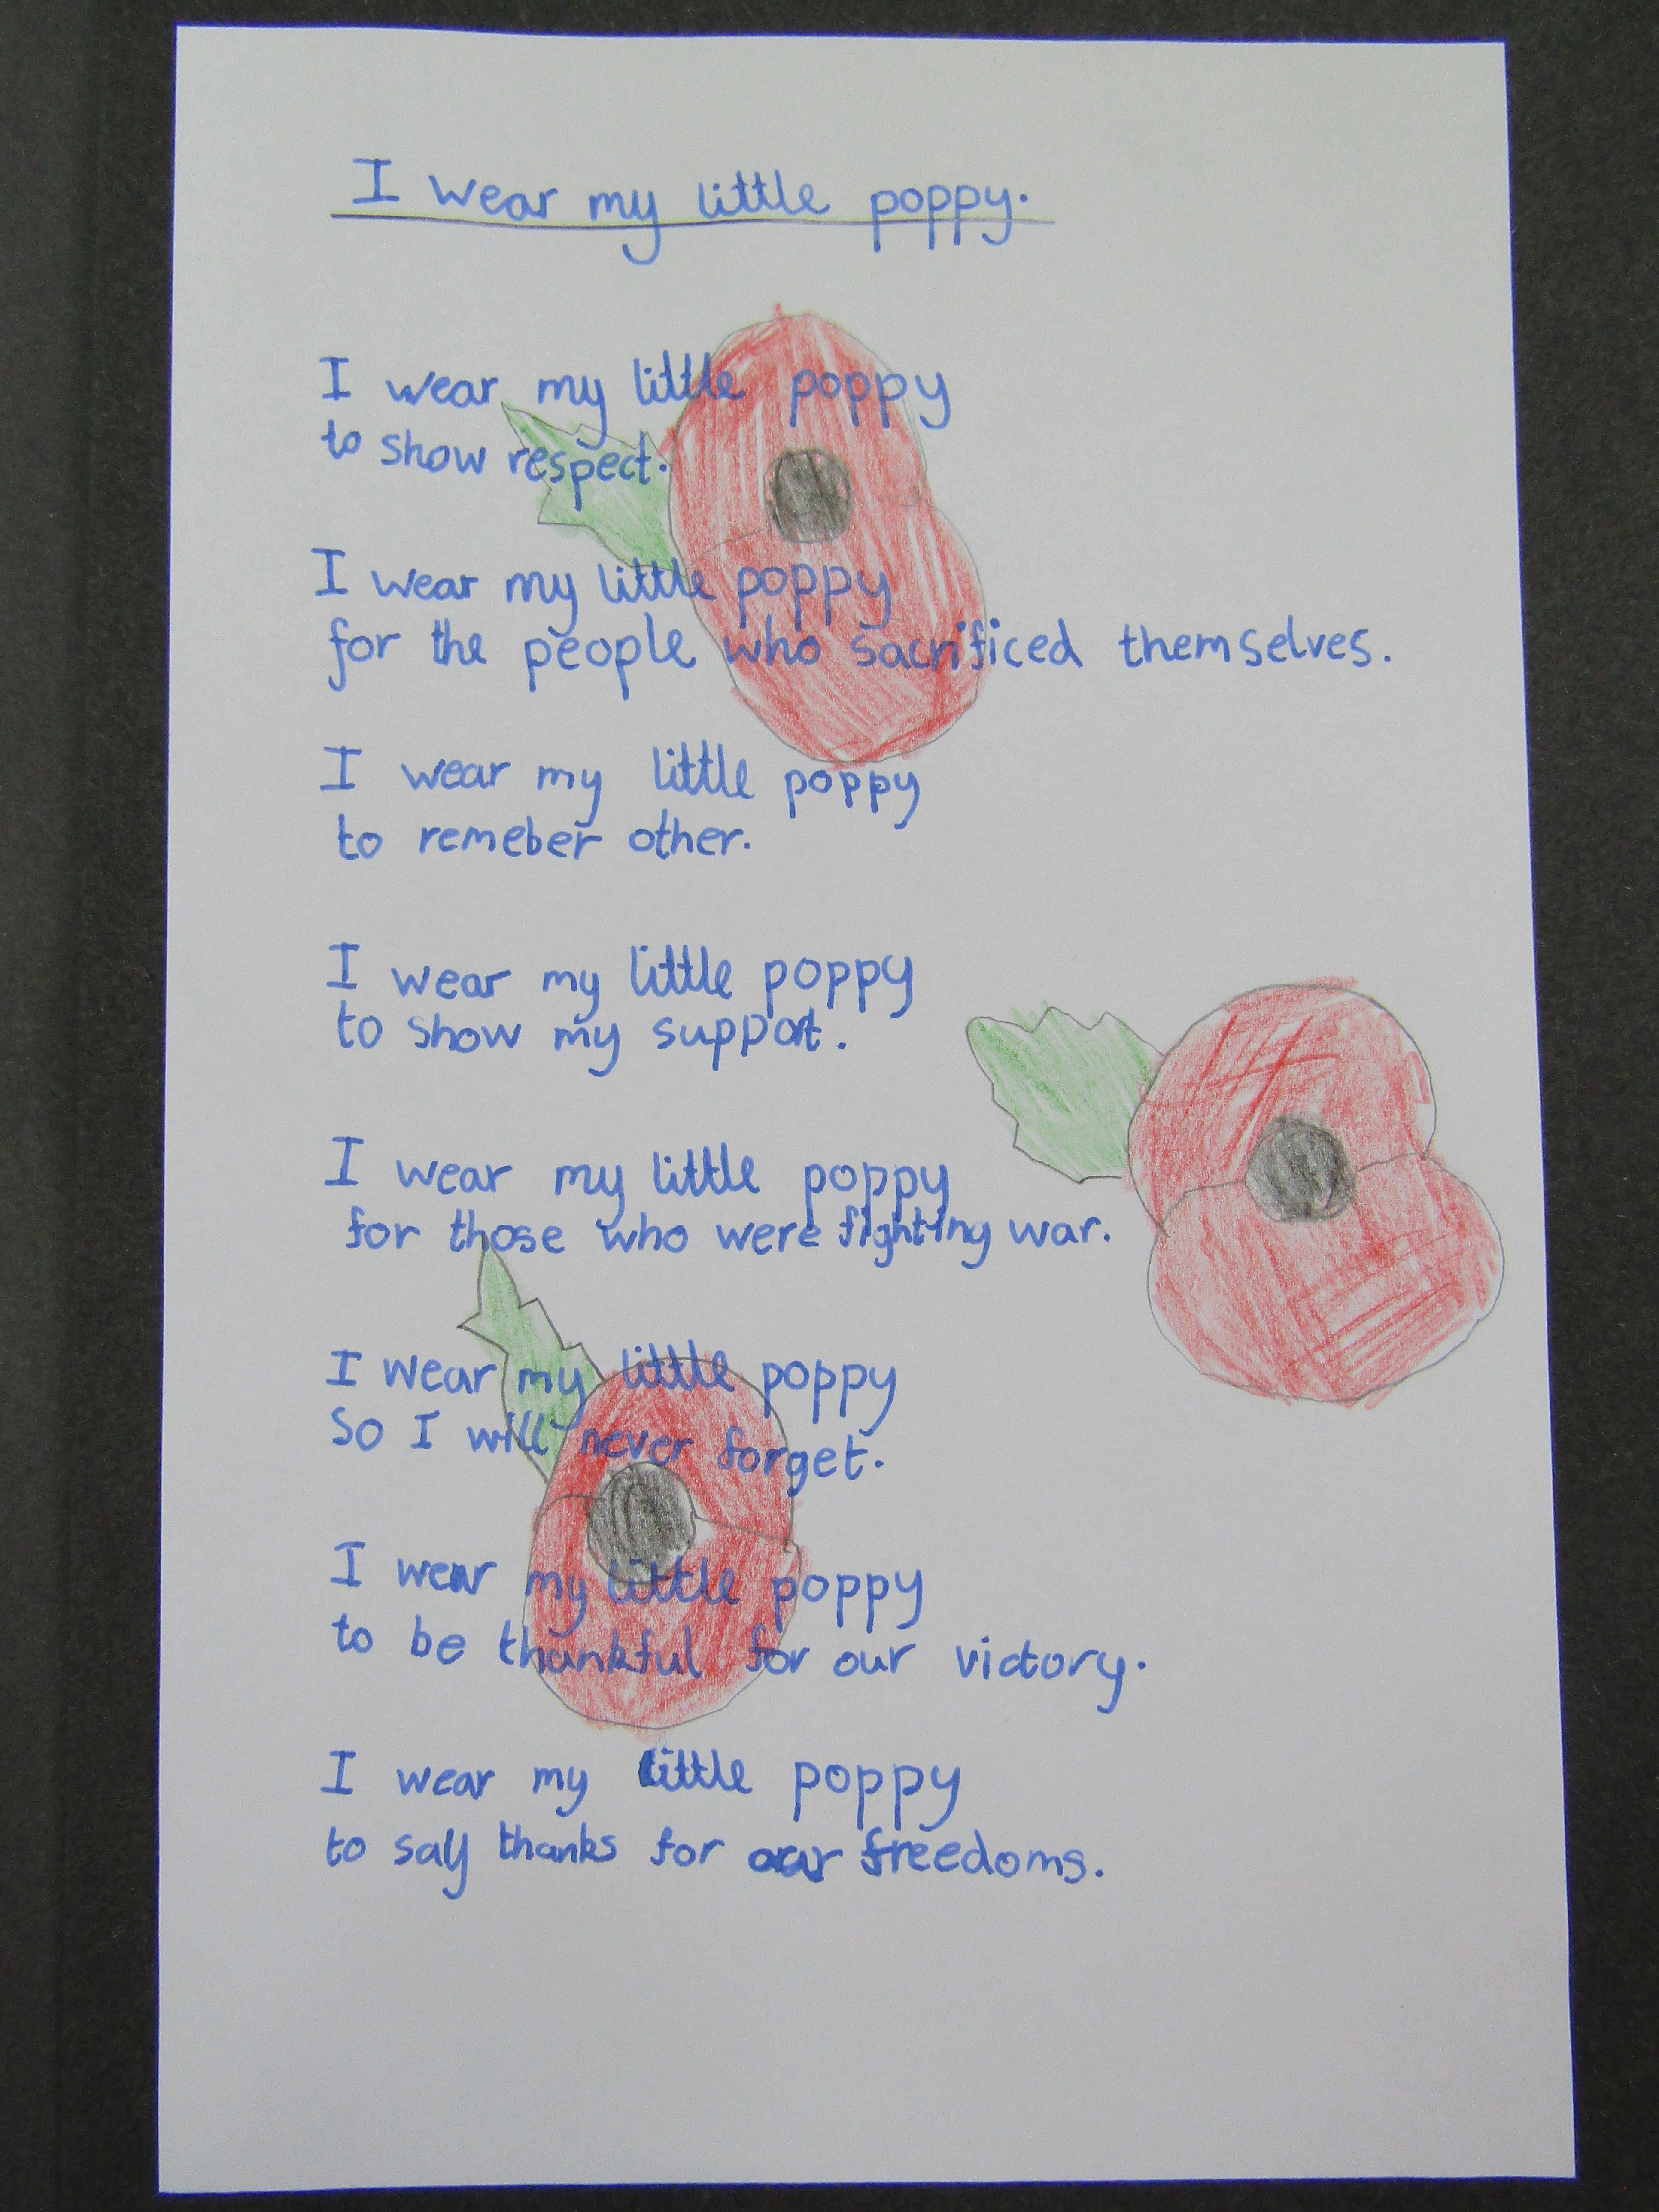 I wear my little poppy.
I wear my little poppy
to show respect.
I wear my little poppy
for the people who sacrificed themselves.
I wear my little poppy
to remeber other.
I wear my little poppy
to show my support.
I wear my little poppy
for those who were fighting war.
I wear my little poppy
So I will never forget.
I wear my little poppy
to be thankful for our victory.
I wear my little poppy
to say thanks for our freedoms.